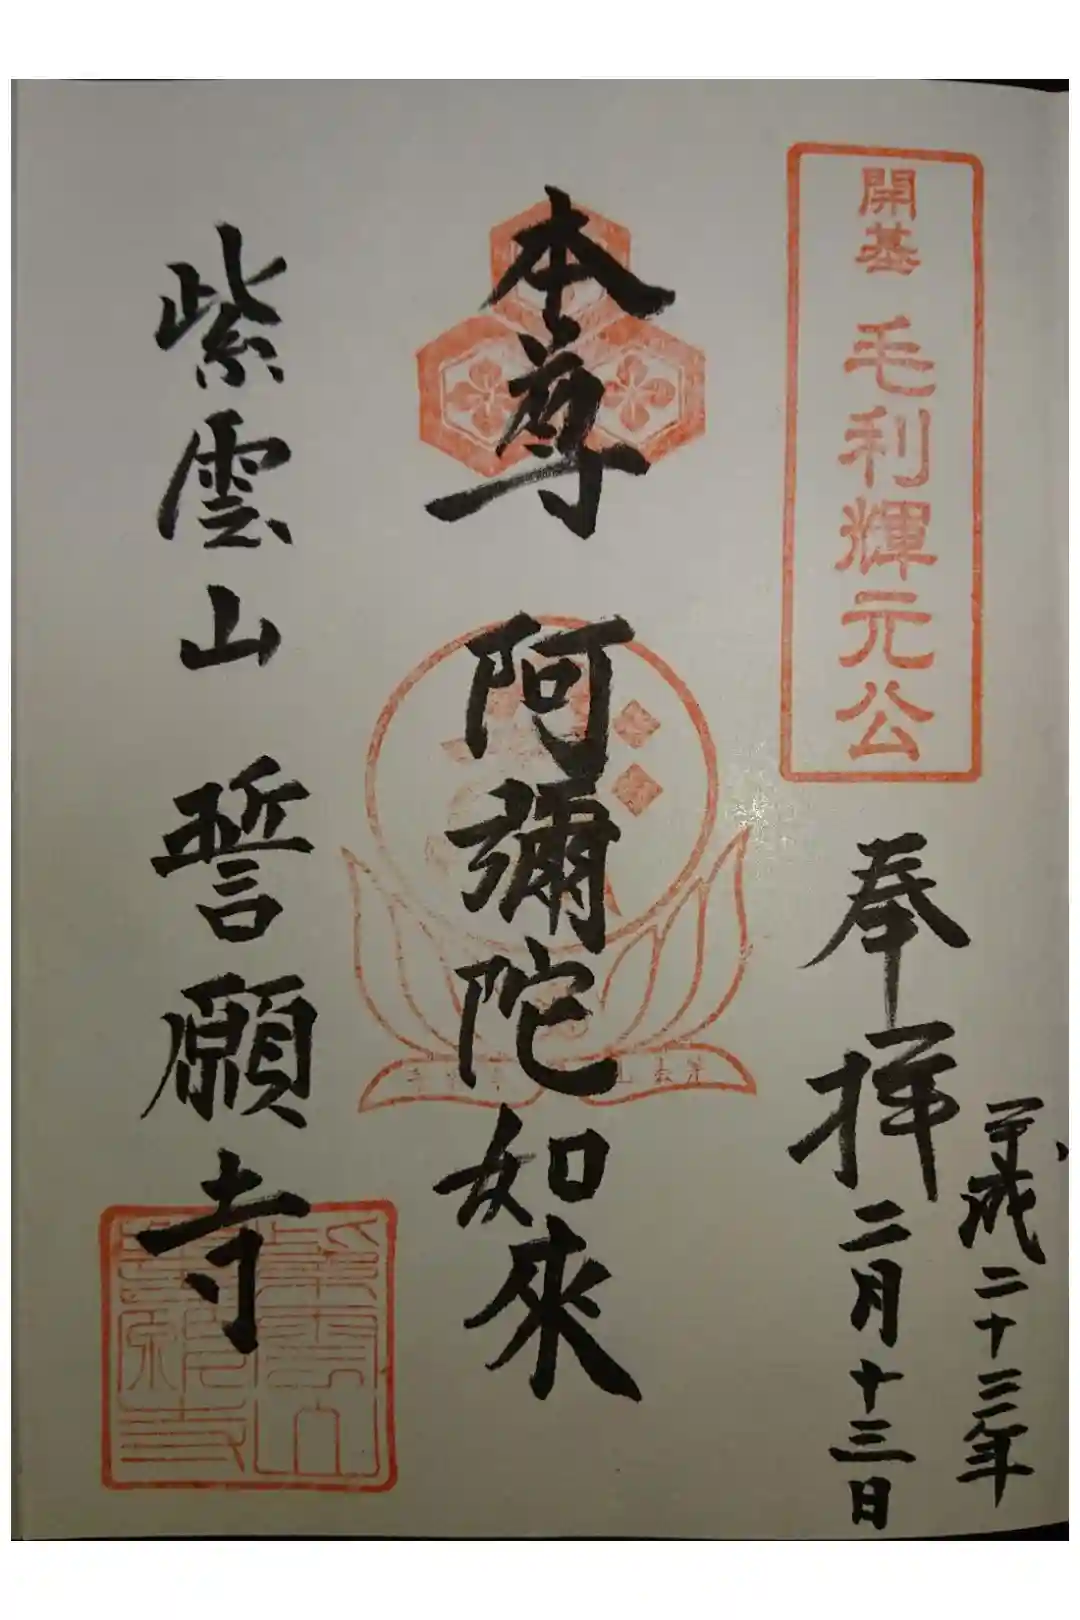 開基 毛利輝元公
奉拝
平成二十三年
二月十三日
本尊 阿彌陀如來
紫雲山 誓願寺
紫雲山
誓願寺